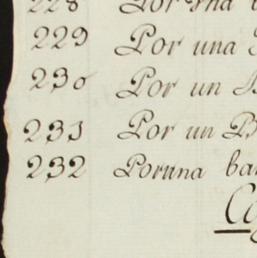 228 Por una
229 Por una
230 Por un
231 Por un
232 Poruna